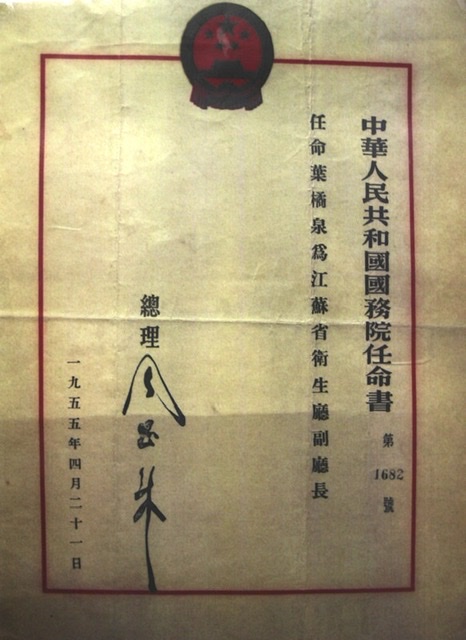 中華人民共和國國務院任命書
第1682號
任命葉橘泉爲江蘇省衛生廳副廳長
總理 周恩来
一九五五年四月二十一日